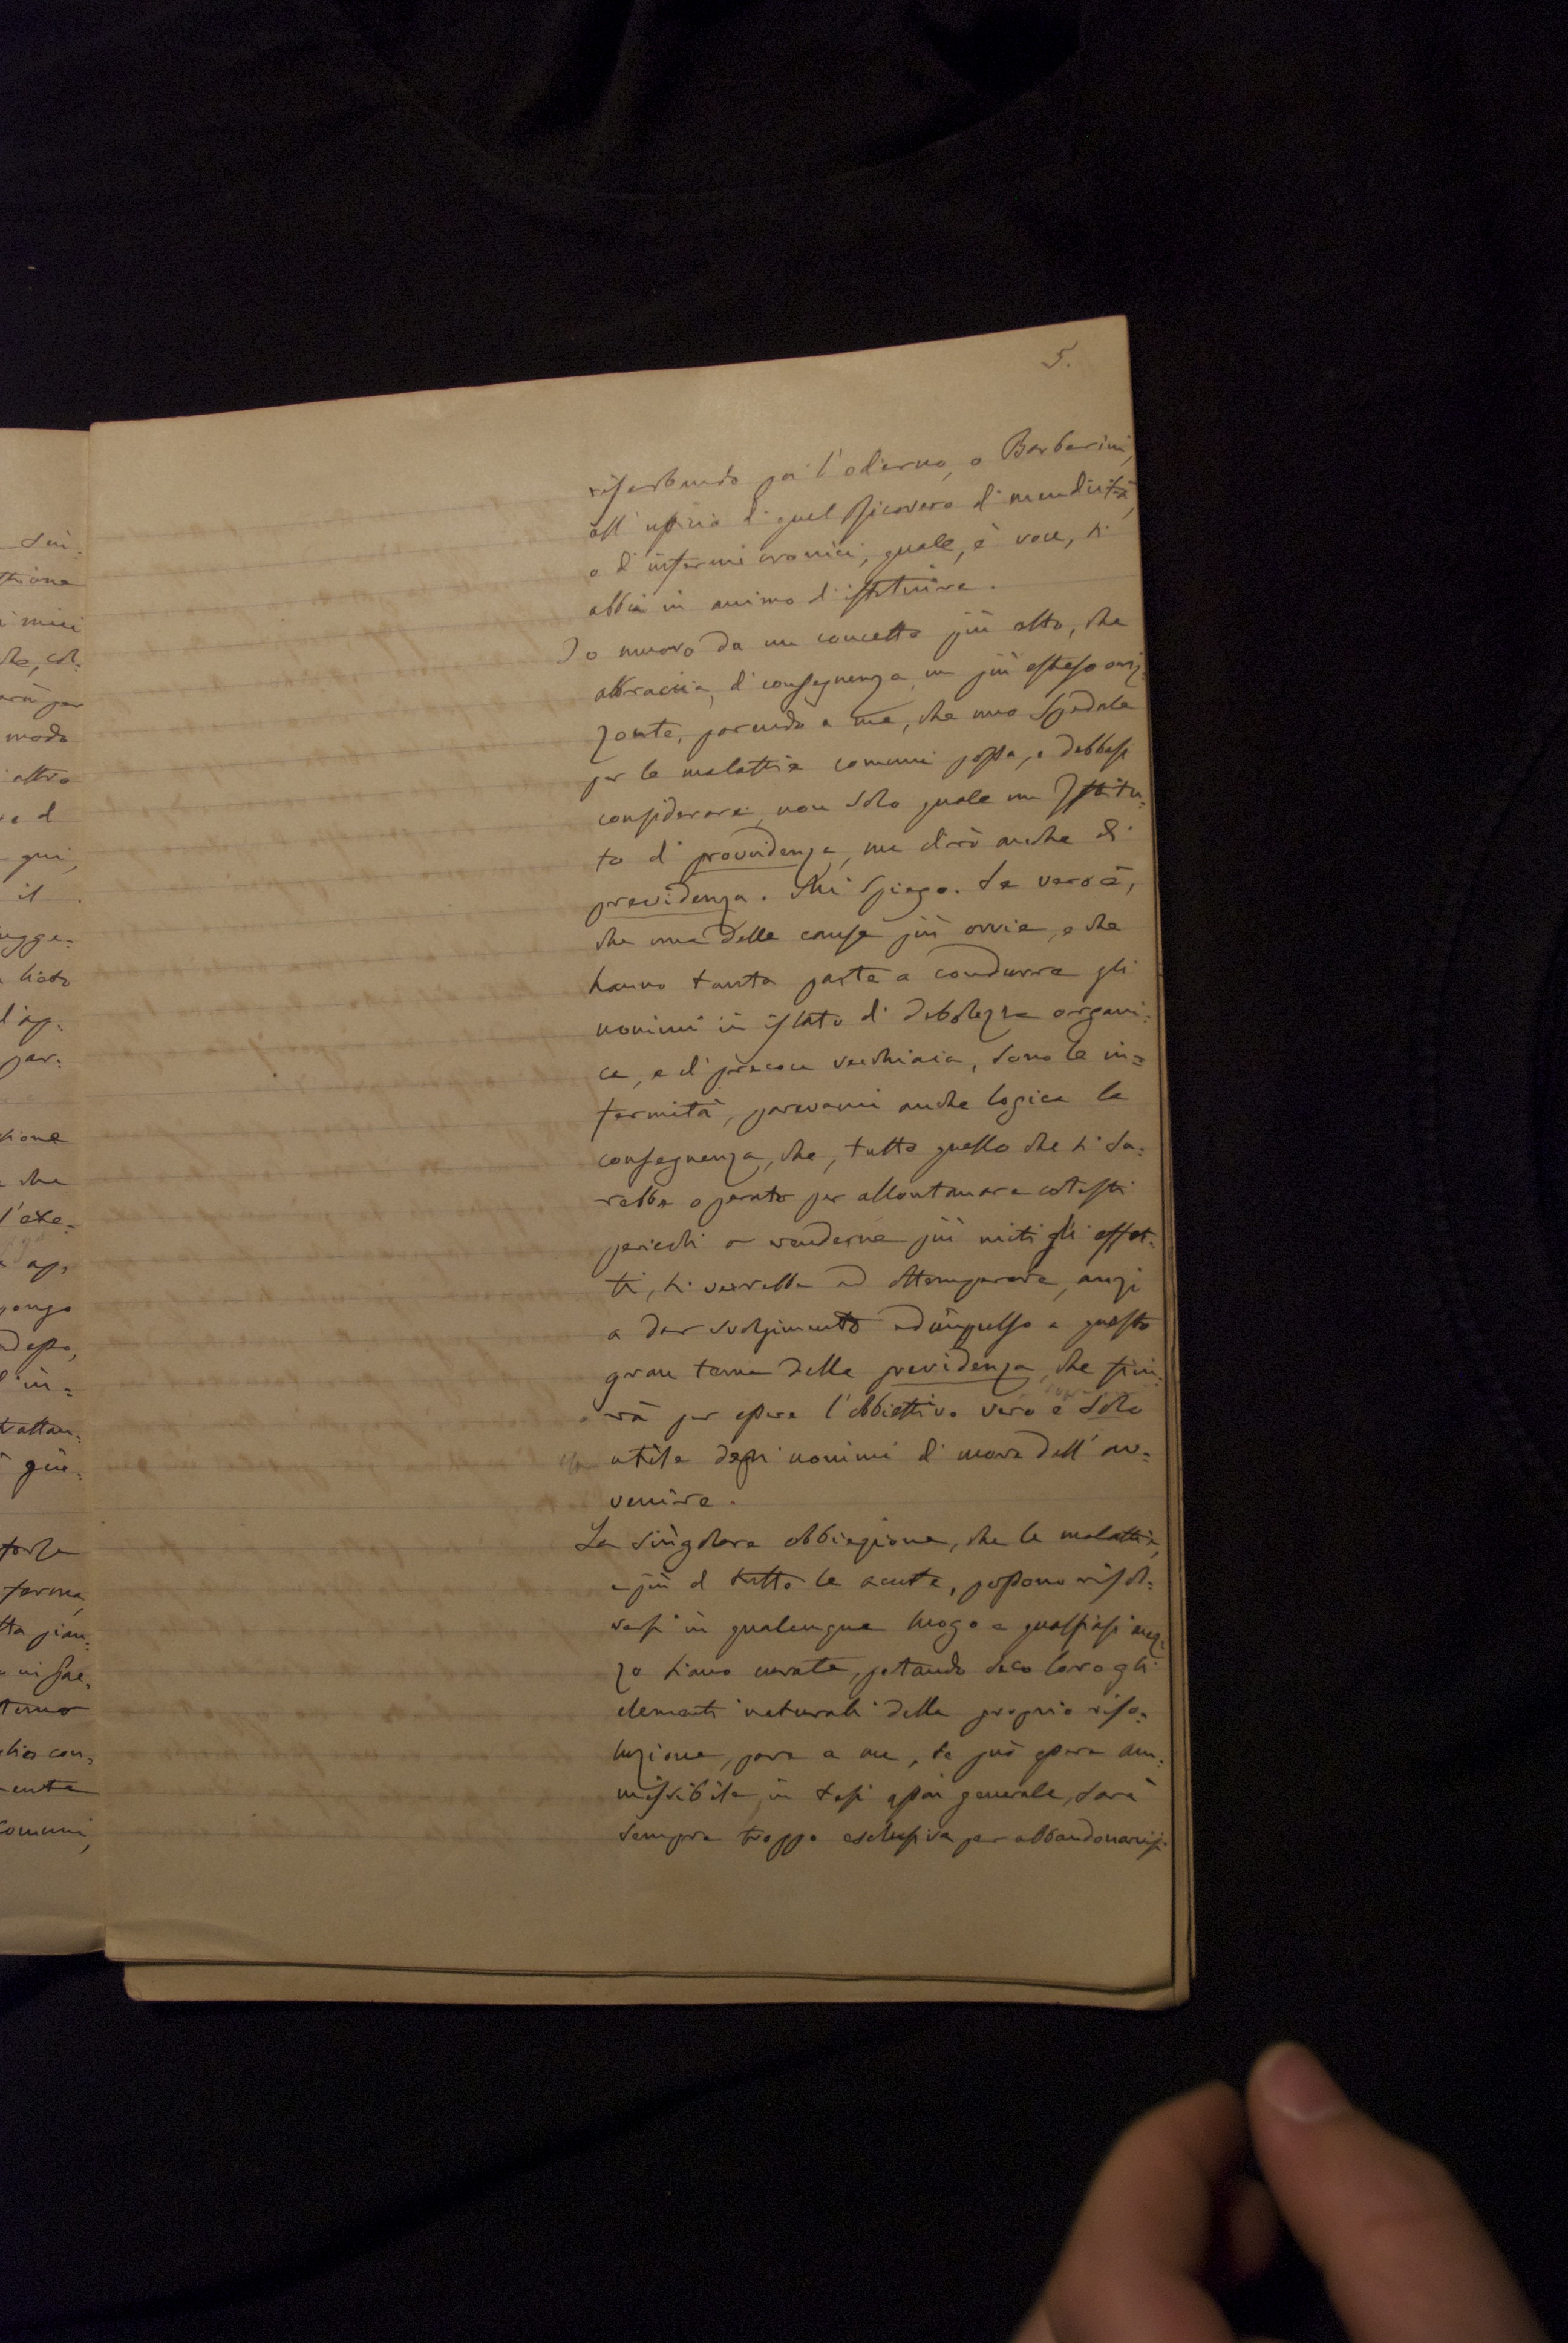 5.
riserbando poi l'odierno, o Barberini,
all'ufficio di quel Ricovero di mendicità,
o d'infermi cronici, quale, è voce, si
abbia in animo d'istituire.
Io muovo da un concetto più alto, che
abbraccia, di conseguenza, un più esteso oriz-
zonte, parendo a me, che uno Spedale
per le malattie comuni possa, e debbasi
considerare, non solo quale un Istitu-
to di provvidenza, ma dirò anche di
previdenza. Mi spiego. Se vero è,
che una delle cause più ovvie, e che
hanno tanta parte a condurre gli
uomini in istato di debolezza organi-
ca, e di precoce vecchiaia, sono le in=
fermità, parevami anche logica la
conseguenza, che, tutto quello che si sa-
rebbe operato per allontanare cotesti
pericoli o renderne più miti gli effet-
ti, si verrebbe ad ottemperare, anzi
a dar svolgimento ed impulso a questo
gran tema della previdenza, che fini-
rà per essere l'obbiettivo vero e solo
utile degli uomini di cuore dell'av=
venire.
La singolare obbiezione, che le malattie,
e più di tutto le acute, possono risol-
versi in qualunque luogo e qualsiasi mez-
zo siano curate, portando seco loro gli
elementi naturali della propria riso-
luzione, pare a me, se può essere am-
missibile, in tesi assai generale, sarà
sempre troppo esclusiva per abbandonarvisi
sui-
miei
per
modo
altro
d
qui,
il
par-
che
in=
forse
forma,
comuni,